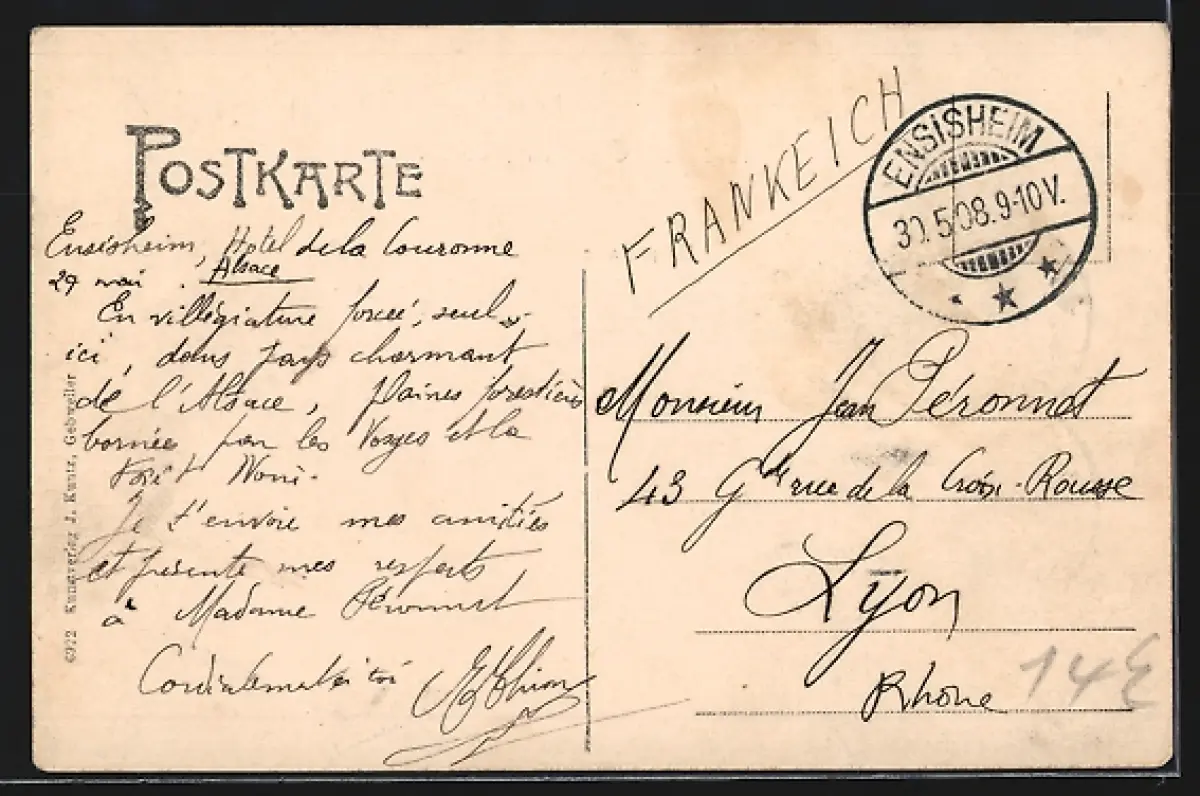 POSTKARTE
Ensisheim, Hotel de la Couronne
29 mai. Alsace
En villégiature forcée, seul
ici, dans pays charmant
de l'Alsace, plaines forestières
bornées par les Vosges et la
Forêt Noire.
Je t'envoie mes amitiés
et présente mes respects
à Madame Péronnet
Cordialement à toi
6922 Kunstverlag J. Kuntz, Gebweiler
FRANKEICH
ENSISHEIM
30.5.08.9-10V.
Monsieur Jean Péronnet
43 Gde rue de la Croix-Rousse
Lyon
Rhône
14€